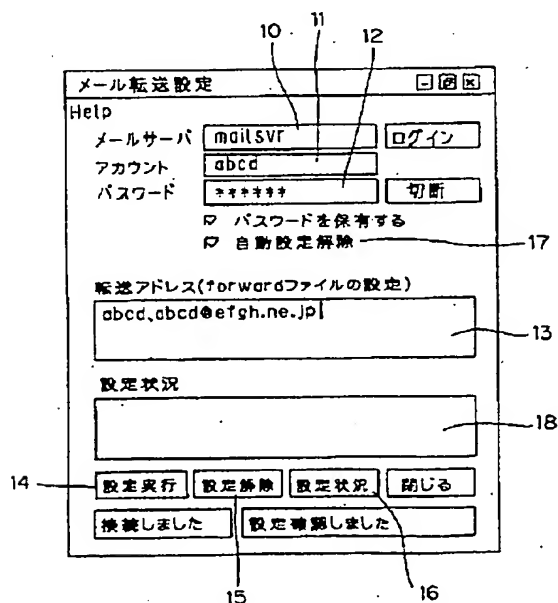 10
11
12
メール転送設定
Help
メールサーバ mailsvr ログイン
アカウント abcd
パスワード ****** 切断
パスワードを保有する
自動設定解除 17
転送アドレス(forwardファイルの設定)
abcd、abcd@efgh.ne.jp
13
設定状況
18
14 設定実行 設定解除 設定状況 閉じる
接続しました 設定確認しました
15
16